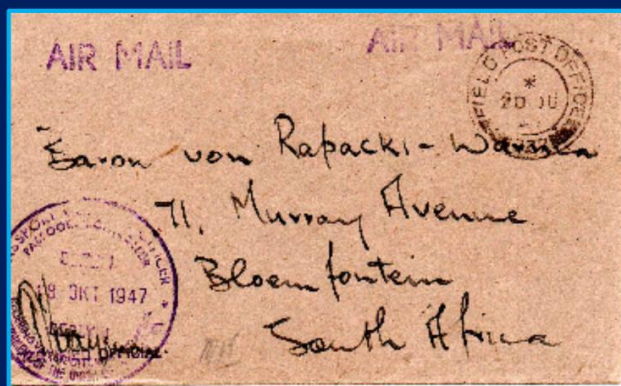 AIR MAIL AIR MAIL
FIELD POST OFFICE
Baron von Rapacki-Warnia
71, Murray Avenue
Bloemfontein
South Africa
18 OKT 1947
OFFICIAL